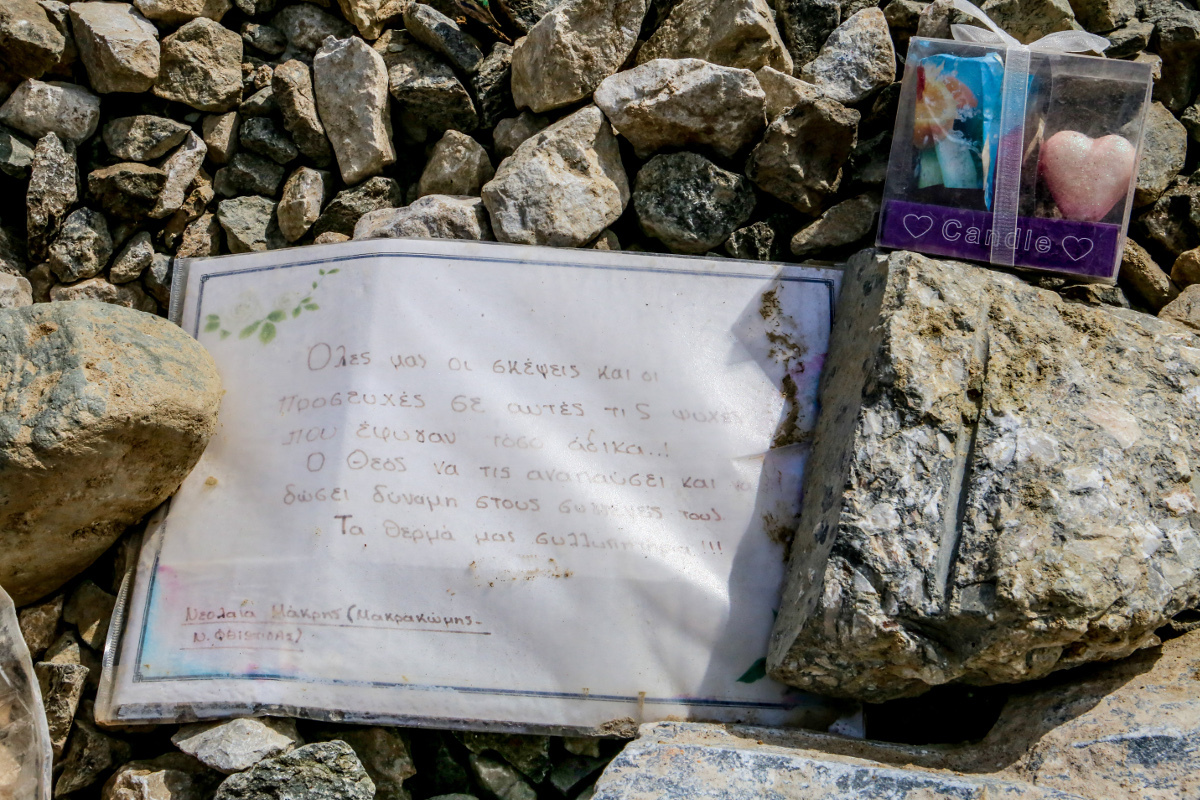 Candle
Όλες μας οι σκέψεις και οι
προσευχές σε αυτές τις ψυχές
που έφυγαν τόσο άδικα..!
Ο Θεός να τις αναπαύσει και να
δώσει δύναμη στους συγγενείς τους.
Τα θερμά μας συλλυπητήρια!!!
Νεολαία Μάκρης (Μακρακώμης-
Ν. Φθιώτιδας)